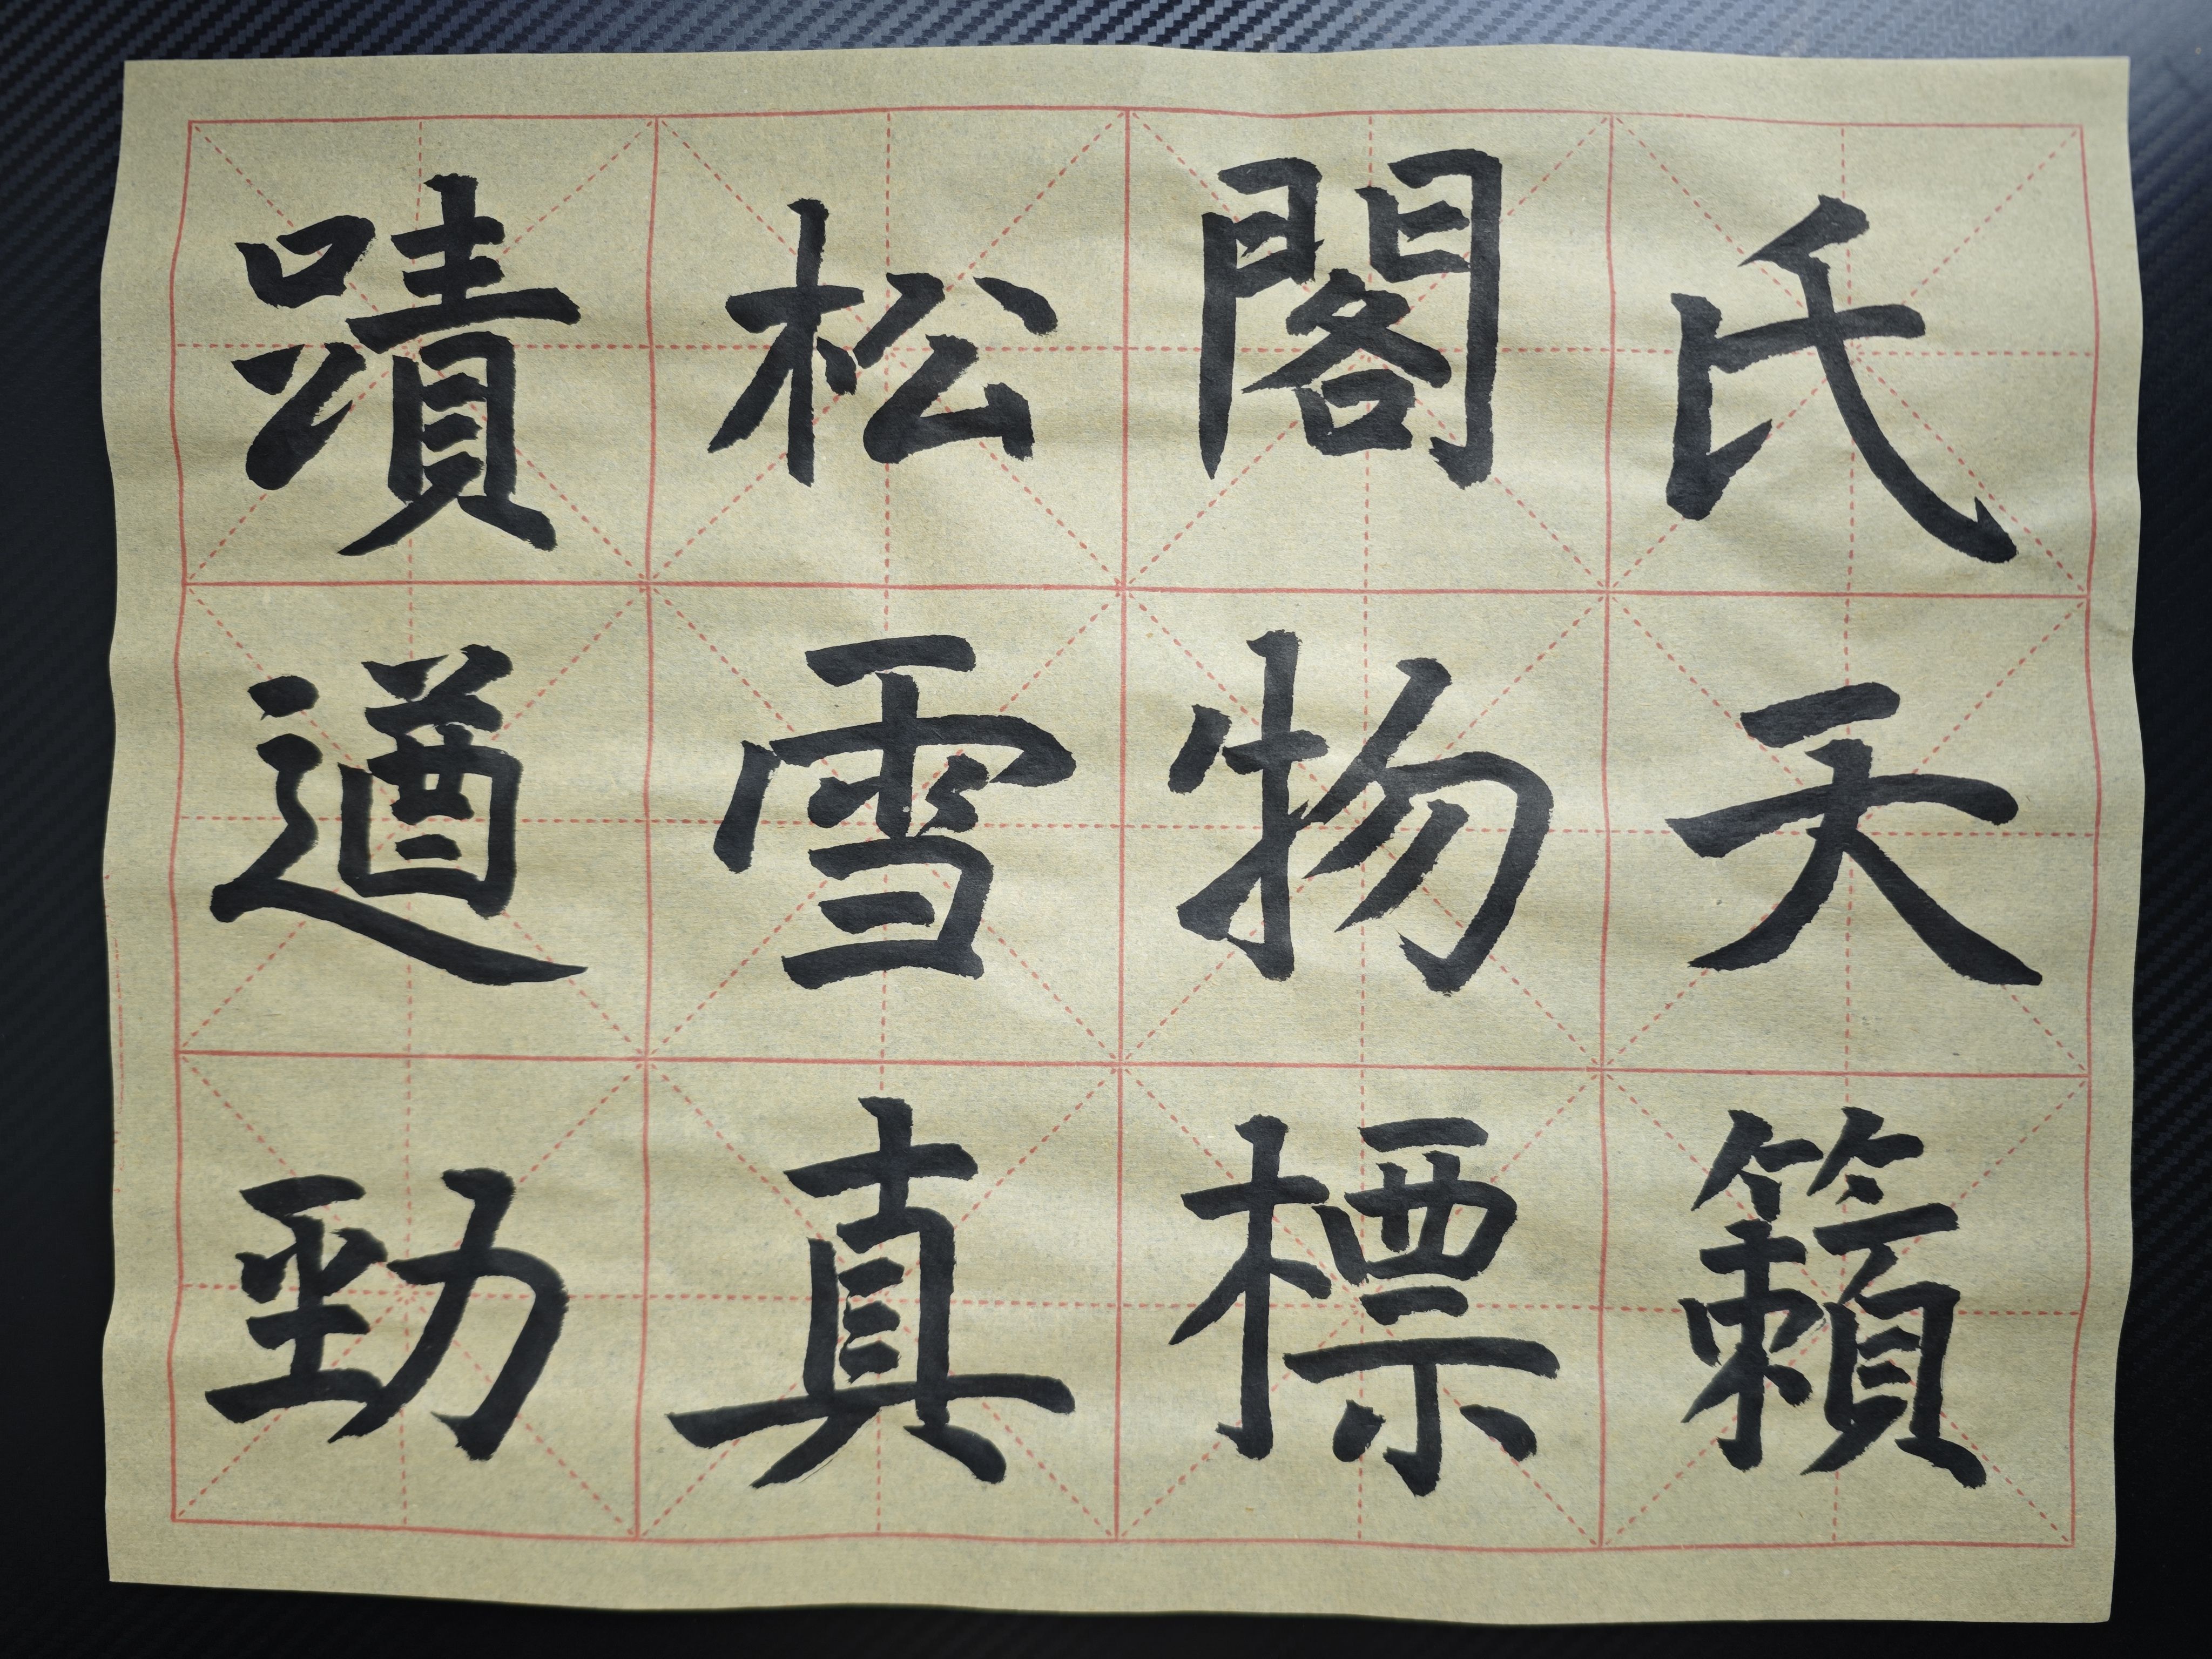 氏天籟
閣物標
松雪真
蹟遒勁